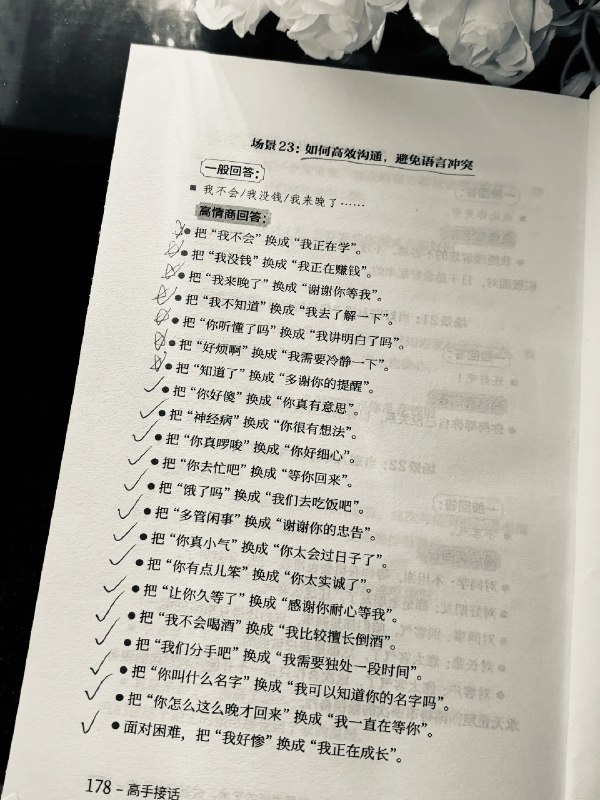 场景23：如何高效沟通，避免语言冲突
一般回答：
■ 我不会/我没钱/我来晚了……
高情商回答：
● 把“我不会”换成“我正在学”。
● 把“我没钱”换成“我正在赚钱”。
● 把“我来晚了”换成“谢谢你等我”。
● 把“我不知道”换成“我去了解一下”。
● 把“你听懂了吗”换成“我讲明白了吗”。
● 把“好烦啊”换成“我需要冷静一下”。
● 把“知道了”换成“多谢你的提醒”。
● 把“你好傻”换成“你真有意思”。
● 把“神经病”换成“你很有想法”。
● 把“你真啰唆”换成“你好细心”。
● 把“你去忙吧”换成“等你回来”。
● 把“饿了吗”换成“我们去吃饭吧”。
● 把“多管闲事”换成“谢谢你的忠告”。
● 把“你真小气”换成“你太会过日子了”。
● 把“你有点儿笨”换成“你太实诚了”。
● 把“让你久等了”换成“感谢你耐心等我”。
● 把“我不会喝酒”换成“我比较擅长倒酒”。
● 把“我们分手吧”换成“我需要独处一段时间”。
● 把“你叫什么名字”换成“我可以知道你的名字吗”。
● 把“你怎么这么晚才回来”换成“我一直在等你”。
● 面对困难，把“我好惨”换成“我正在成长”。
178 - 高手接话